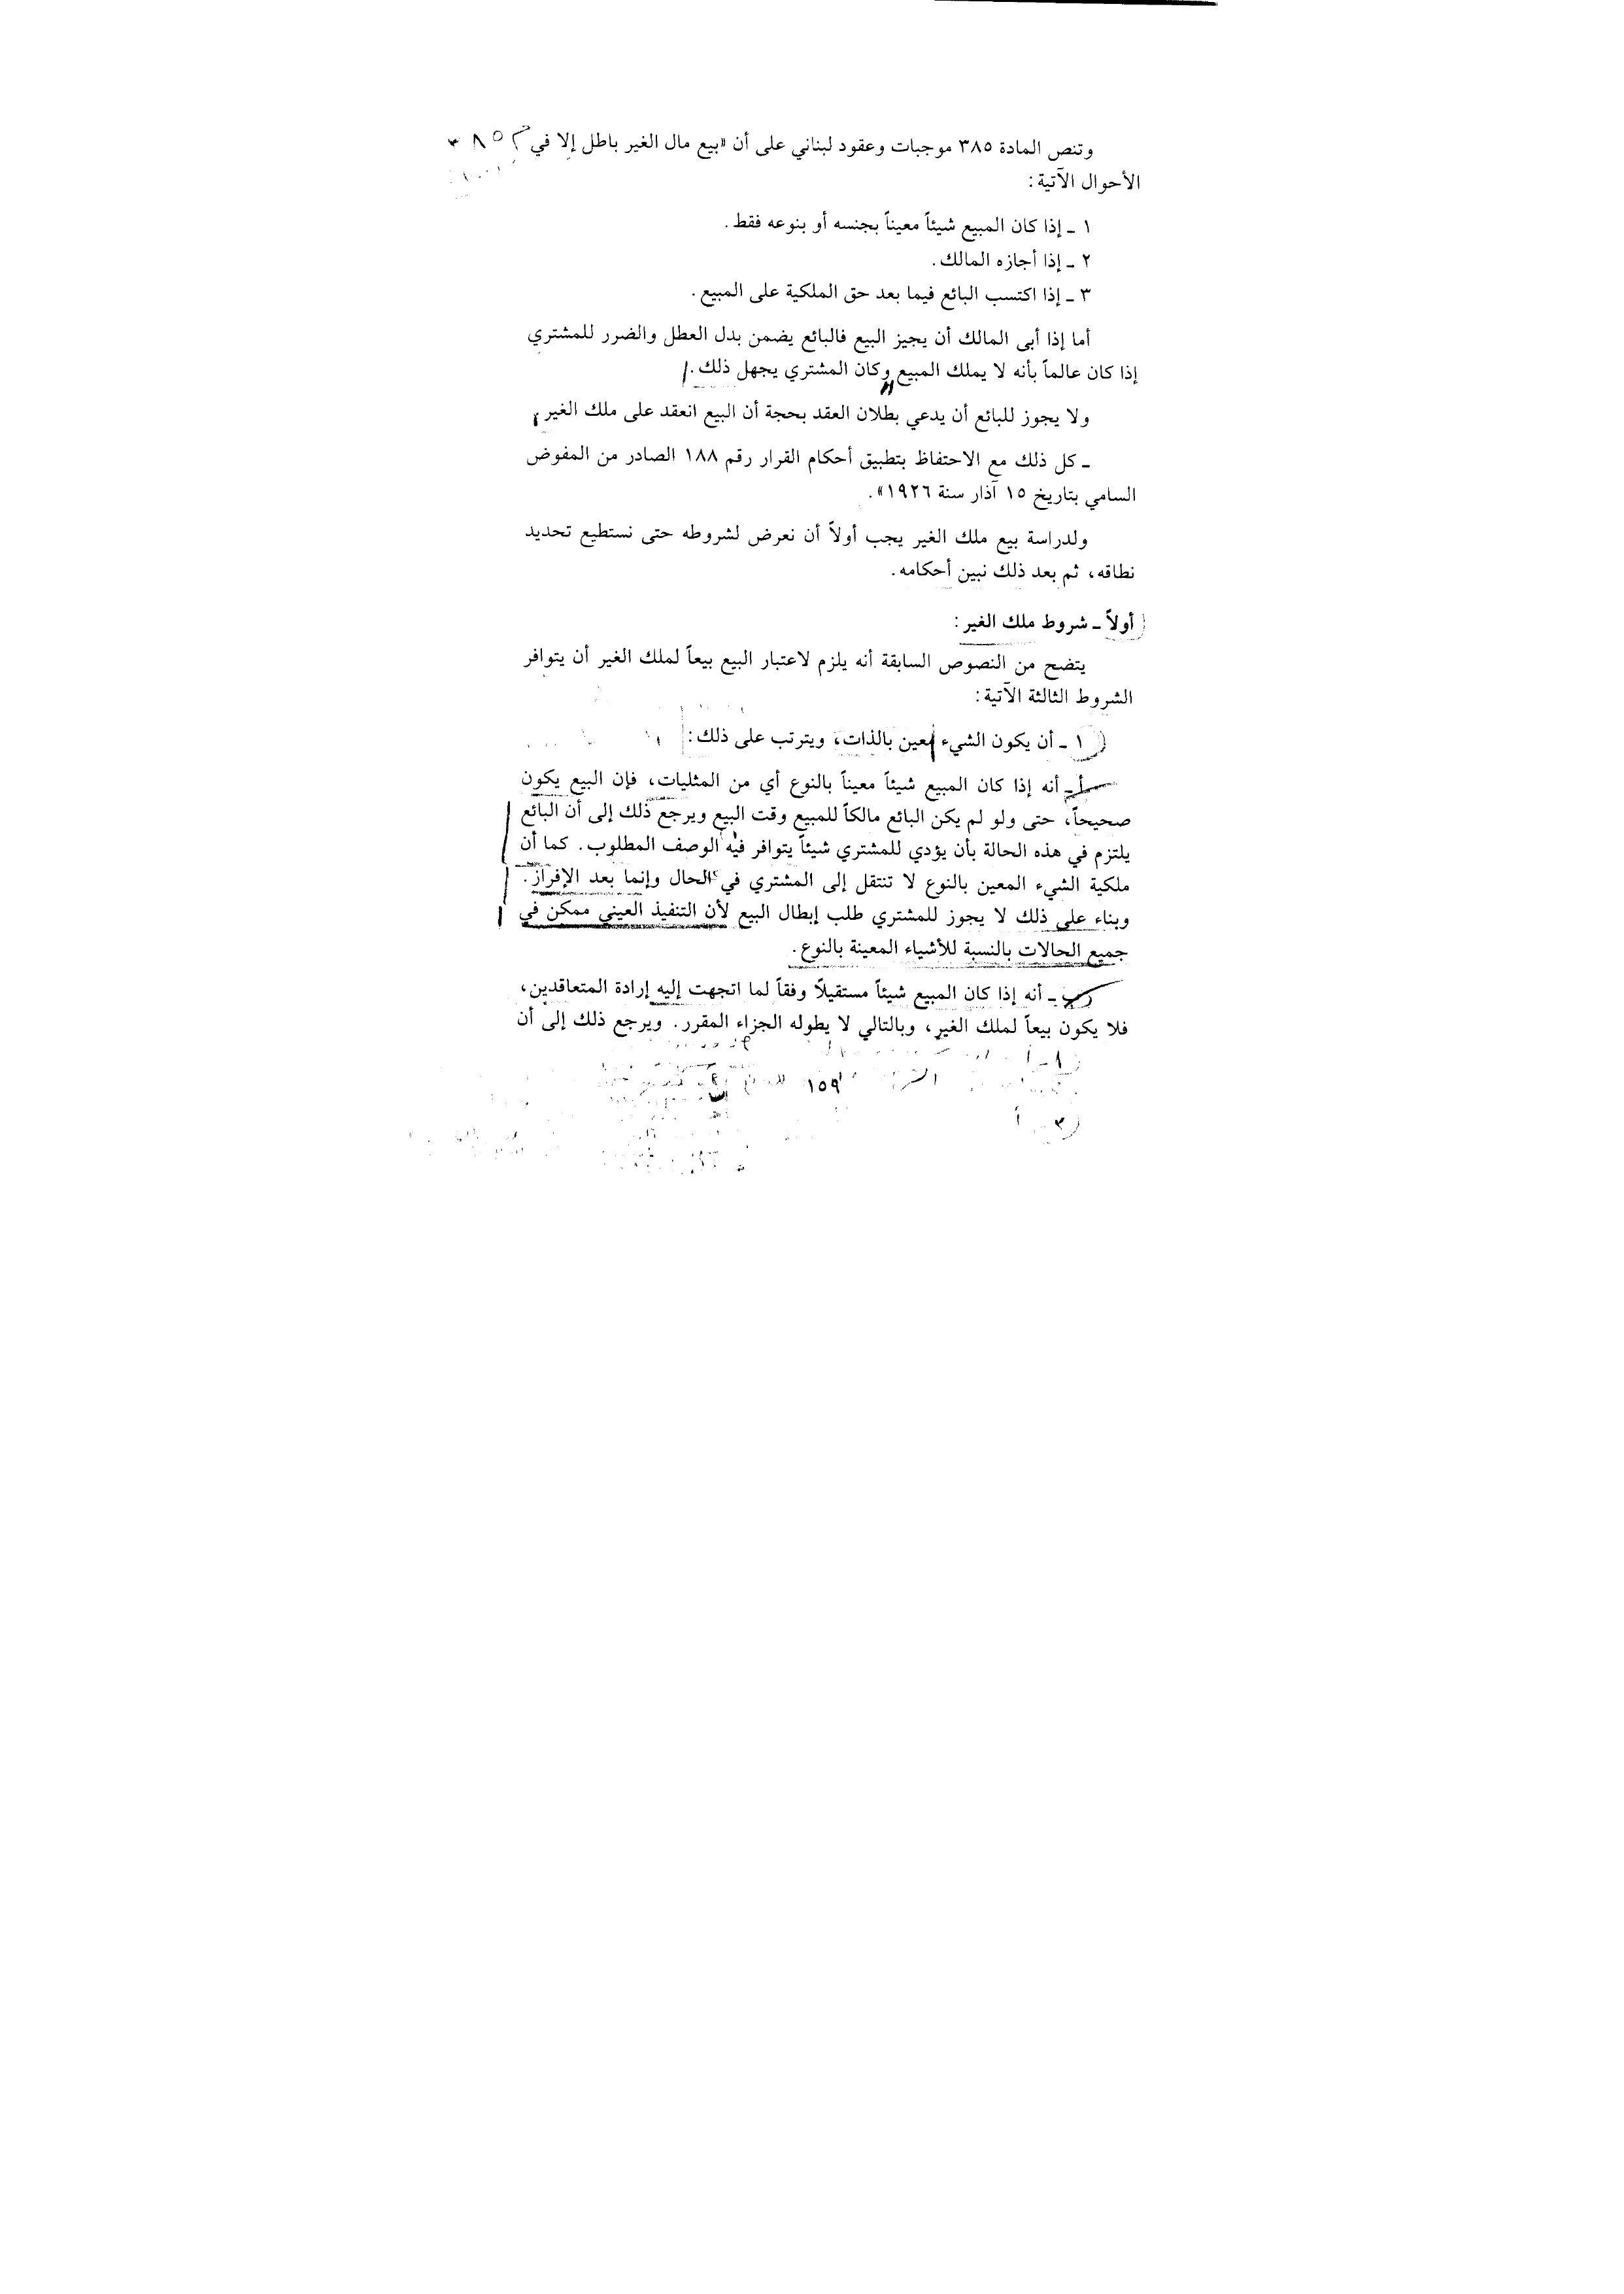 وتنص المادة ٣٨٥ موجبات وعقود لبناني على أن «بيع مال الغير باطل إلا في م ٣٨٥
الأحوال الآتية:
١ ـ إذا كان المبيع شيئاً معيناً بجنسه أو بنوعه فقط.
٢ ـ إذا أجازه المالك.
٣ ـ إذا اكتسب البائع فيما بعد حق الملكية على المبيع.
أما إذا أبى المالك أن يجيز البيع فالبائع يضمن بدل العطل والضرر للمشتري
إذا كان عالماً بأنه لا يملك المبيع وكان المشتري يجهل ذلك.
ولا يجوز للبائع أن يدعي بطلان العقد بحجة أن البيع انعقد على ملك الغير،
ـ كل ذلك مع الاحتفاظ بتطبيق أحكام القرار رقم ١٨٨ الصادر من المفوض
السامي بتاريخ ١٥ آذار سنة ١٩٢٦».
ولدراسة بيع ملك الغير يجب أولاً أن نعرض لشروطه حتى نستطيع تحديد
نطاقه، ثم بعد ذلك نبين أحكامه.
أولاً ـ شروط ملك الغير:
يتضح من النصوص السابقة أنه يلزم لاعتبار البيع بيعاً لملك الغير أن يتوافر
الشروط الثالثة الآتية:
١ ـ أن يكون الشيء معين بالذات، ويترتب على ذلك:
أ ـ أنه إذا كان المبيع شيئاً معيناً بالنوع أي من المثليات، فإن البيع يكون
صحيحاً، حتى ولو لم يكن البائع مالكاً للمبيع وقت البيع ويرجع ذلك إلى أن البائع
يلتزم في هذه الحالة بأن يؤدي للمشتري شيئاً يتوافر فيه الوصف المطلوب. كما أن
ملكية الشيء المعين بالنوع لا تنتقل إلى المشتري في الحال وإنما بعد الإفراز.
وبناء على ذلك لا يجوز للمشتري طلب إبطال البيع لأن التنفيذ العيني ممكن في
جميع الحالات بالنسبة للأشياء المعينة بالنوع.
ب ـ أنه إذا كان المبيع شيئاً مستقيلاً وفقاً لما اتجهت إليه إرادة المتعاقدين،
فلا يكون بيعاً لملك الغير، وبالتالي لا يطوله الجزاء المقرر. ويرجع ذلك إلى أن
١٥٩